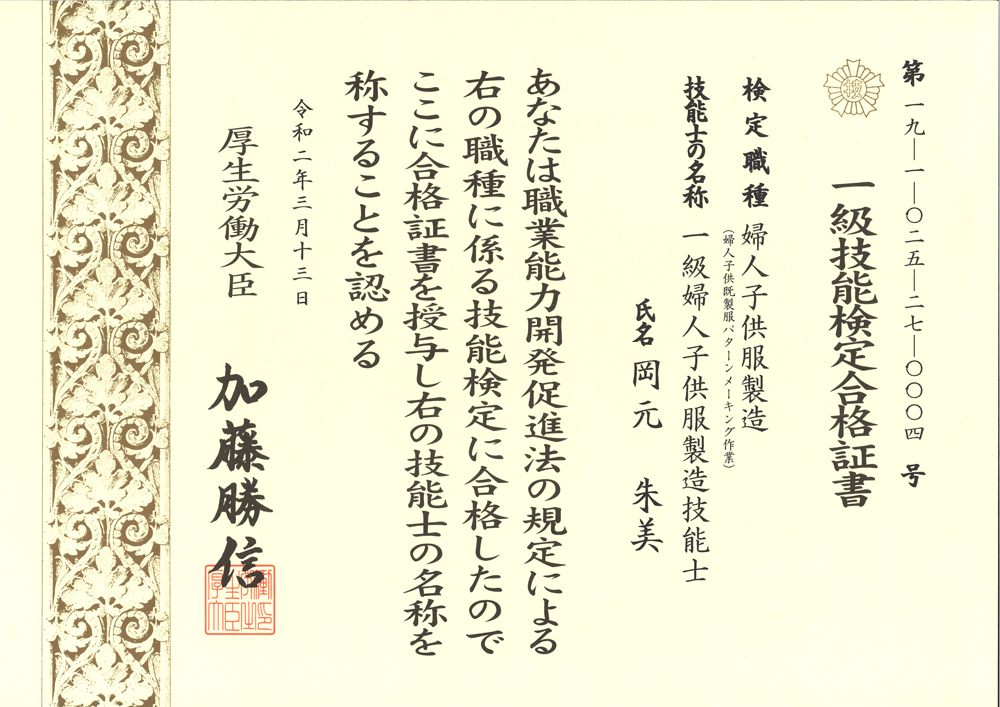 第一九―一―〇二五―二七―〇〇〇四号
技
一級技能検定合格証書
検定職種 婦人子供服製造
(婦人子供既製服パターンメーキング作業)
技能士の名称 一級婦人子供服製造技能士
氏名 岡元 朱美
あなたは職業能力開発促進法の規定による
右の職種に係る技能検定に合格したので
ここに合格証書を授与し右の技能士の名称を
称することを認める
令和二年三月十三日
厚生労働大臣
加藤勝信